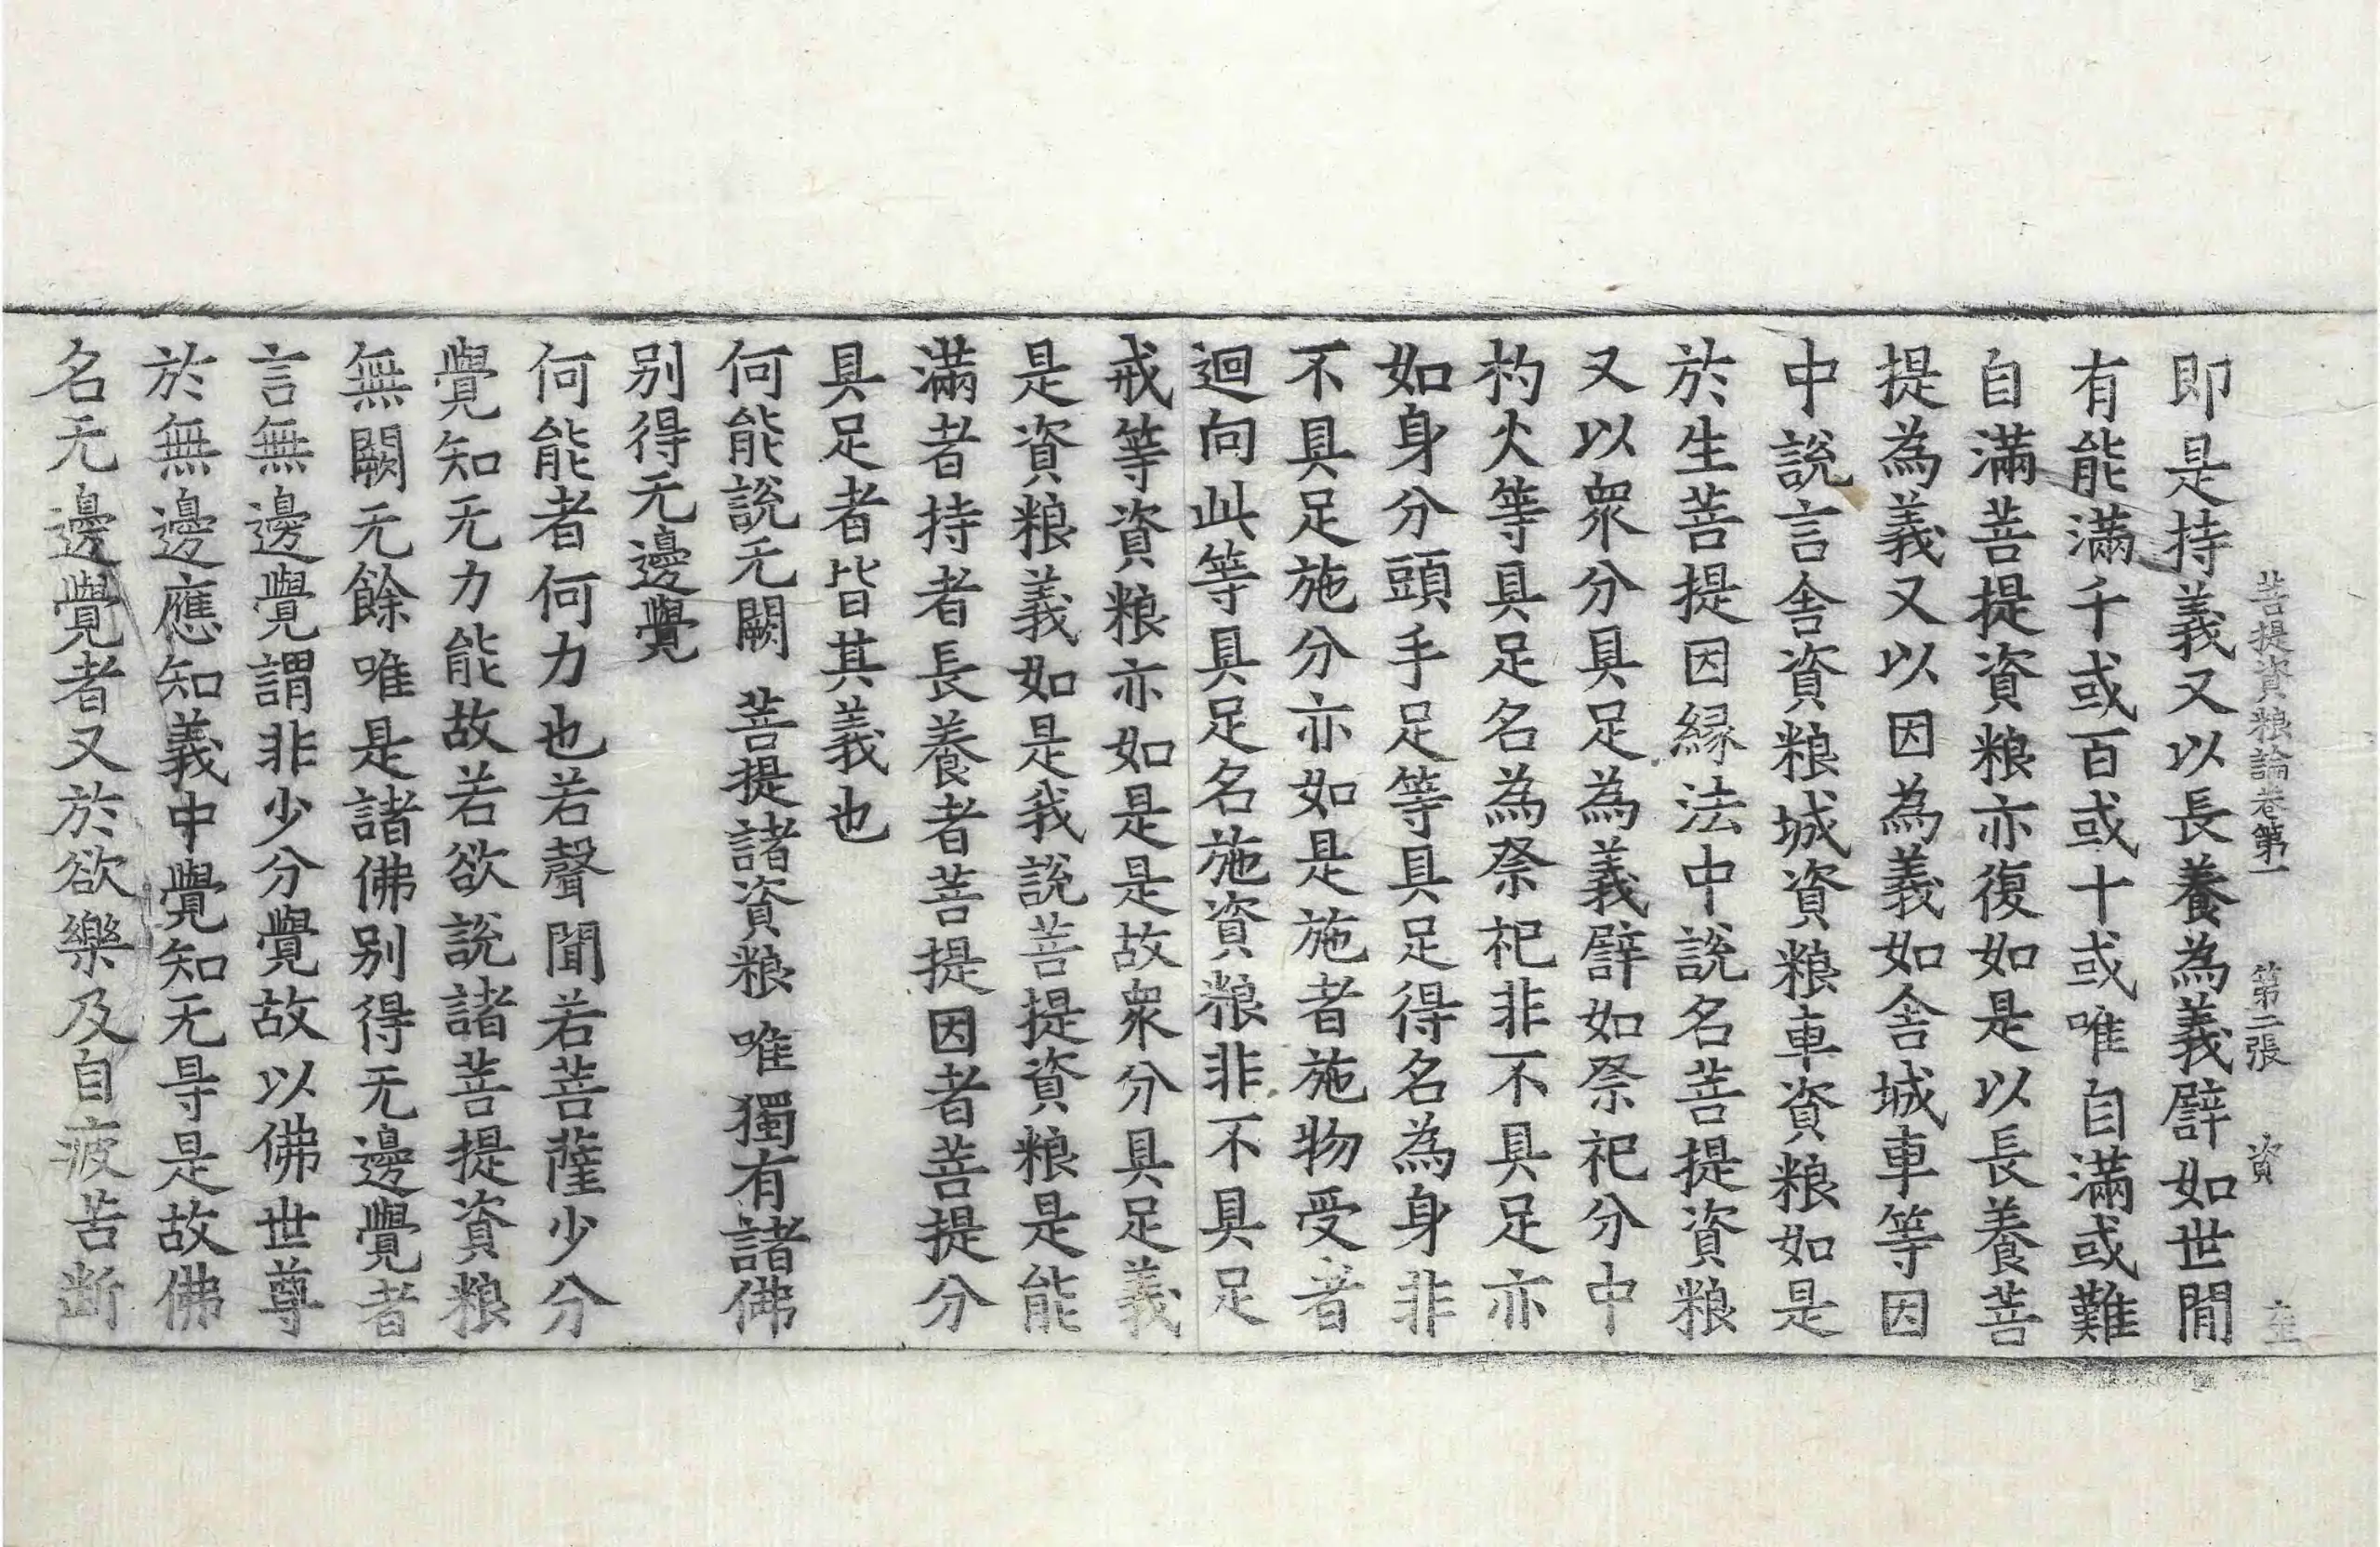 菩提資粮論卷第一 第二張 資
即是持義又以長養為義譬如世間
有能滿千或百或十或唯自滿或難
自滿菩提資粮亦復如是以長養菩
提為義又以因為義如舍城車等因
中說言舍資粮城資粮車資粮如是
於生菩提因緣法中說名菩提資粮
又以衆分具足為義譬如祭祀分中
杓火等具足名為祭祀非不具足亦
如身分頭手足等具足得名為身非
不具足施分亦如是施者施物受者
迴向此等具足名施資粮非不具足
戒等資粮亦如是是故衆分具足義
是資粮義如是我說菩提資粮是能
滿者持者長養者菩提因者菩提分
具足者皆其義也
何能說无闕 菩提諸資粮 唯獨有諸佛
别得无邊覺
何能者何力也若聲聞若菩薩少分
覺知无力能故若欲說諸菩提資粮
無闕无餘唯是諸佛别得无邊覺者
言無邊覺謂非少分覺故以佛世尊
於無邊應知義中覺知无㝵是故佛
名无邊覺者又於欲樂及自疲苦断